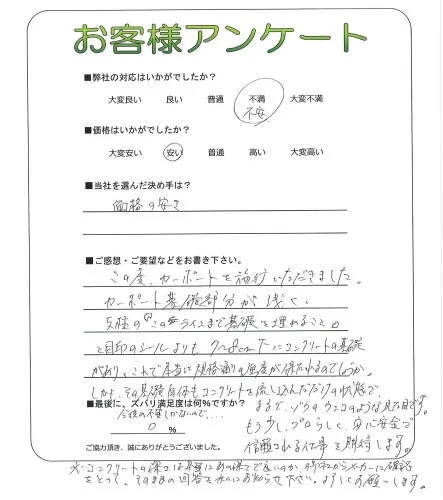 お客様アンケート
■弊社の対応はいかがでしたか？
大変良い 良い 普通 不満 大変不満
不安
■価格はいかがでしたか？
大変安い 安い 普通 高い 大変高い
■当社を選んだ決め手は？
価格の安さ
■ご感想・ご要望などをお書き下さい。
この度、カーポートを施行いただきました。
カーポート基礎部分が浅く、
支柱の「このラインまで基礎を埋めること」
と目印のシールよりも 7〜8cm下にコンクリートの基礎
があり、これで本当に規格通りの強度が保たれるのでしょうか。
しかも、その基礎自体もコンクリートを流し込んだだけの状態で、
まるで、ゾウのウンコのような見た目です。
■最後に、ズバリ満足度は何%ですか？
今後の不安しかないので....
0 %
もう少し、プロらしく、安心安全で
信頼される仕事を期待します。
ご協力頂き、誠にありがとうございました。
※コンクリートの深さは本当にあの様で良いのか、メーカーに確認
をとって、その回答を私にお知らせ下さい。よろしくお願いします。